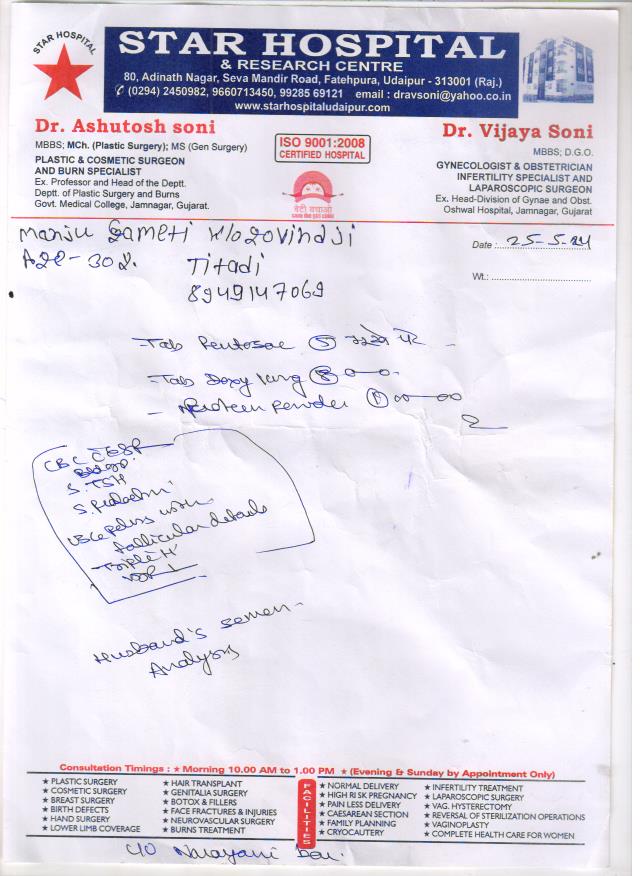 STAR HOSPITAL
STAR HOSPITAL
& RESEARCH CENTRE
80, Adinath Nagar, Seva Mandir Road, Fatehpura, Udaipur - 313001 (Raj.)
(0294) 2450982, 9660713450, 99285 69121 email : dravsoni@yahoo.co.in
www.starhospitaludaipur.com
Dr. Ashutosh soni
MBBS; MCh. (Plastic Surgery); MS (Gen Surgery)
PLASTIC & COSMETIC SURGEON
AND BURN SPECIALIST
Ex. Professor and Head of the Deptt.
Deptt. of Plastic Surgery and Burns
Govt. Medical College, Jamnagar, Gujarat.
ISO 9001:2008
CERTIFIED HOSPITAL
बेटी बचाओ
Dr. Vijaya Soni
MBBS; D.G.O.
GYNECOLOGIST & OBSTETRICIAN
INFERTILITY SPECIALIST AND
LAPAROSCOPIC SURGEON
Ex. Head-Division of Gynae and Obst.
Oshwal Hospital, Jamnagar, Gujarat
Manju Gameti W/o Govindji
Age - 30 y.
Titadi
8949147069
Date : 25-5-24
Wt.:
- Tab
- Tab
- Protein powder
CBC ESR
S. TSH
S. Prolactin
pelvis with
follicular details
Triple H
Husband's semen
Analysis
Consultation Timings : ★ Morning 10.00 AM to 1.00 PM ★ (Evening & Sunday by Appointment Only)
★ PLASTIC SURGERY
★ COSMETIC SURGERY
★ BREAST SURGERY
★ BIRTH DEFECTS
★ HAND SURGERY
★ LOWER LIMB COVERAGE
★ HAIR TRANSPLANT
★ GENITALIA SURGERY
★ BOTOX & FILLERS
★ FACE FRACTURES & INJURIES
★ NEUROVASCULAR SURGERY
★ BURNS TREATMENT
FACILITIES
★ NORMAL DELIVERY
★ HIGH RISK PREGNANCY
★ PAIN LESS DELIVERY
★ CAESAREAN SECTION
★ FAMILY PLANNING
★ CRYOCAUTERY
★ INFERTILITY TREATMENT
★ LAPAROSCOPIC SURGERY
★ VAG. HYSTERECTOMY
★ REVERSAL OF STERILIZATION OPERATIONS
★ VAGINOPLASTY
★ COMPLETE HEALTH CARE FOR WOMEN
C/O Narayani Devi